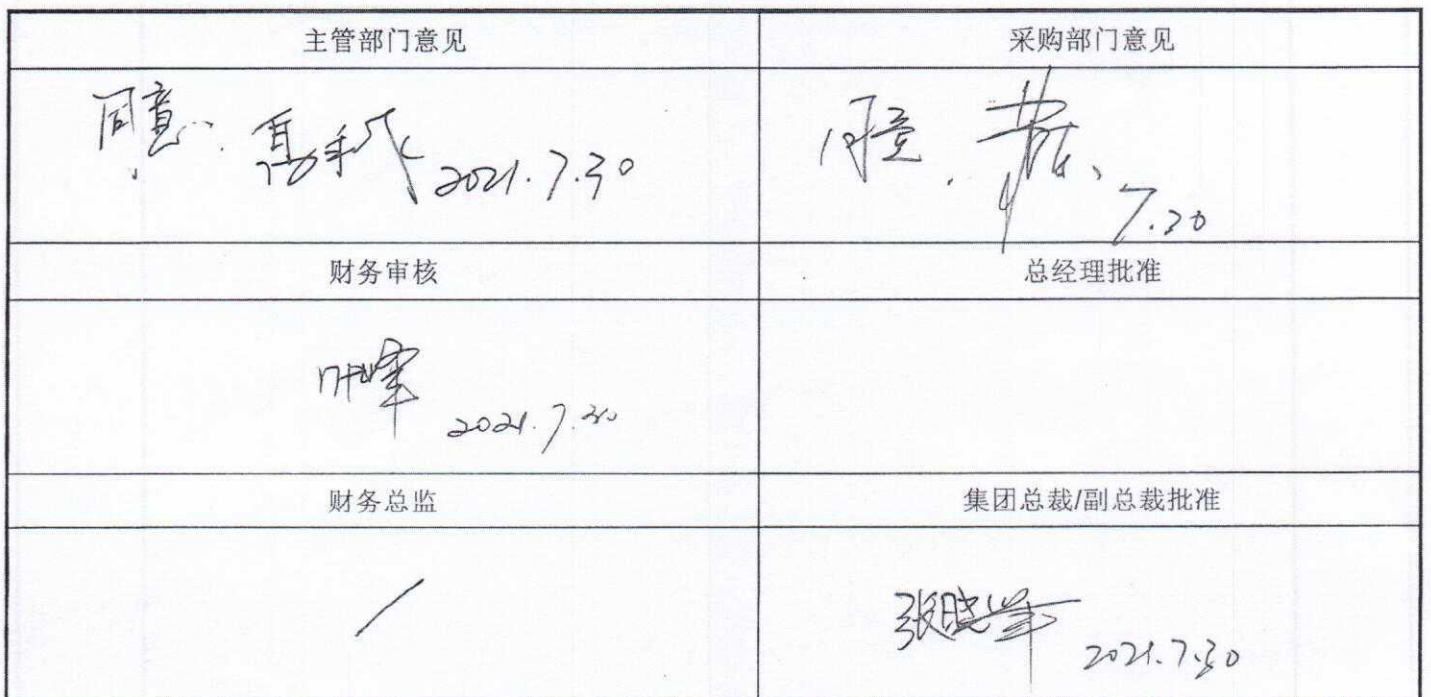 主管部门意见 采购部门意见
同意 2021.7.30 同意 7.30
财务审核 总经理批准
叶峰 2021.7.30
财务总监 集团总裁/副总裁批准
张晓峰 2021.7.30